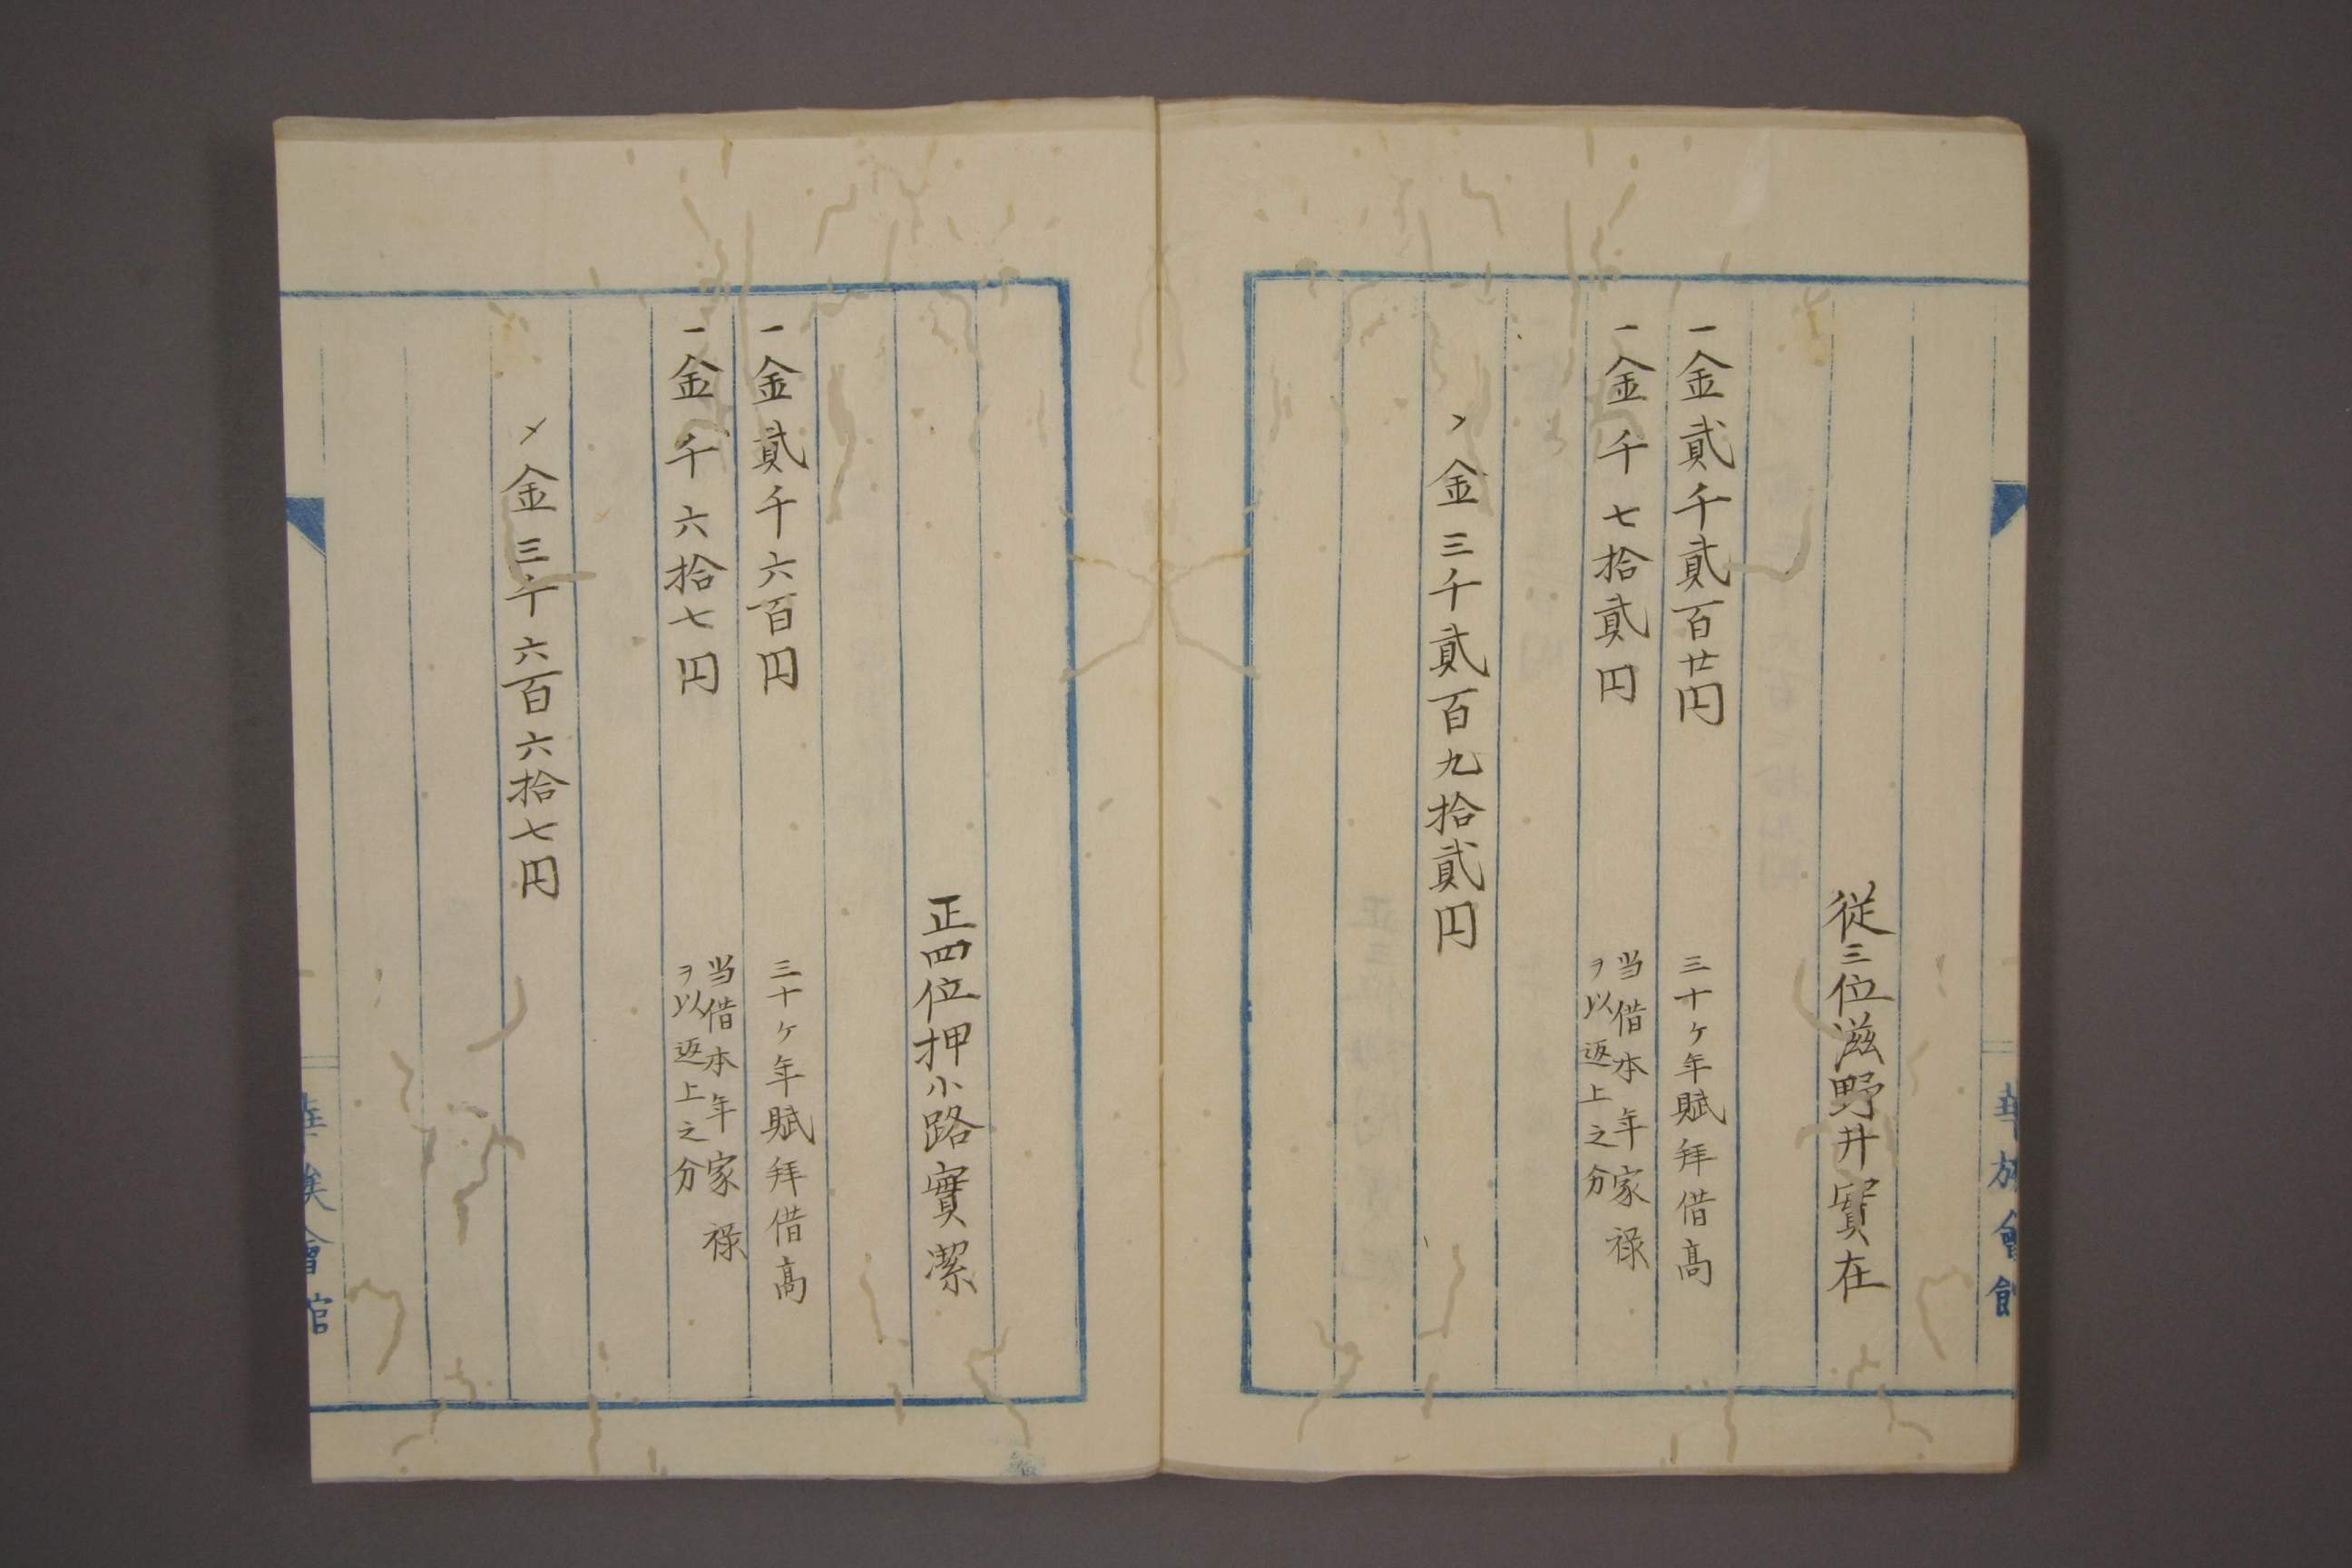 従三位滋野井實在
一金貳千貳百廿円
三十ヶ年賦拜借高
一金千七拾貳円
当借本年家禄
ヲ以返上之分
〆金三千貳百九拾貳円
正四位押小路實潔
一金貳千六百円
三十ヶ年賦拜借高
一金千六拾七円
当借本年家禄
ヲ以返上之分
〆金三千六百六拾七円
華族會館